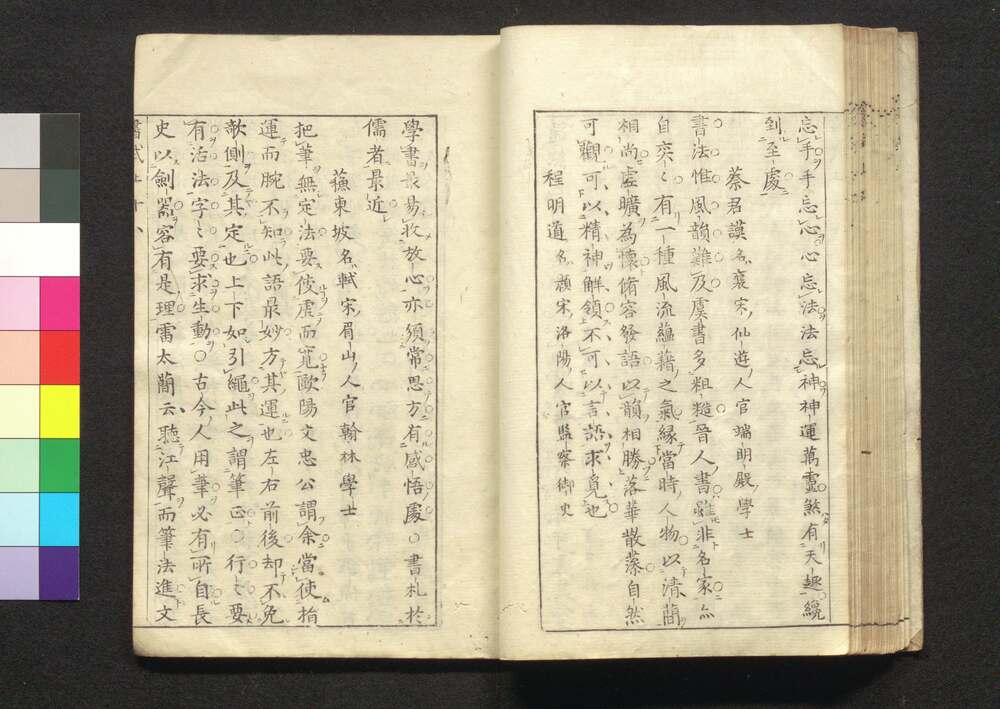 忘手手忘心心忘法法忘神神運萬靈煞有天趣纔
到至處
蔡君謨名襄宋仙遊人官端明殿學士
書法惟風韻難及虞書多粗糙晉人書雖非名家亦
自奕〻有一種風流蘊藉之氣緣當時人物以清簡
相尚虛曠為懷脩容發語以韻相勝落華散藻自然
可觀可以精神解領不可以言語求覓也
程明道名顥宋洛陽人官監察御史
學書最易收放心亦須常思方有感悟處○書札於
儒者最近
蘓東坡名軾宋眉山人官翰林學士
把筆無定法要使虛而寬歐陽文忠公謂余當使指
運而腕不知此語最妙方其運也左右前後却不免
欹側及其定也上下如引繩此之謂筆正○行〻要
有活法字〻要求生動○古今人用筆必有所自長
史以劍器容有是理雷太簡云聽江聲而筆法進文